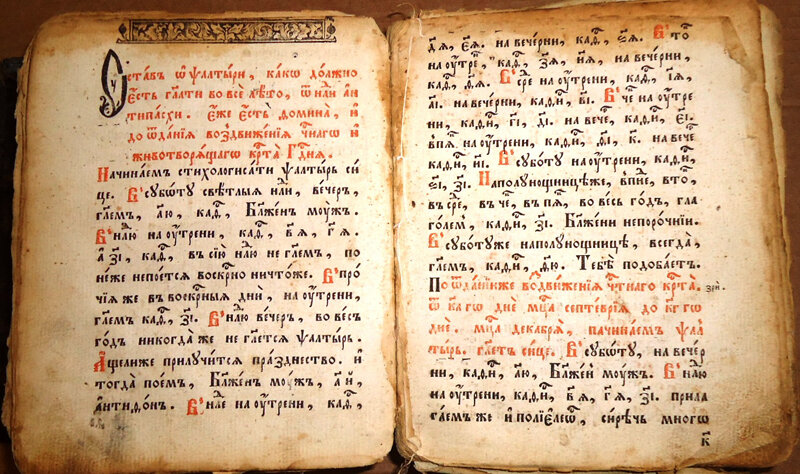 Оуставъ ѿ ѱалтыри, како должно
есть гл҃ати во все лѣто, ѿ нл҃и ан
типасхи. еже есть ѳомина, и
до ѿдания воздвижения чⷭ҇тнаго и
животворящаго крⷭ҇та гдⷭ҇ня.
Начинаемъ стихологисати ѱалтырь си
це. В' суботу свѣтлыя нл҃и, вечеръ,
гл҃емъ, а҃ю, каѳ҃, Блаженъ моужъ.
В' нл҃ю на оутрени, каѳ҃, в҃я, г҃я.
а з҃і, въ сїю нл҃ю не гл҃емъ, по
неже непоется воскрⷭ҇но ничтоже. В' про
чїя же въ воскрⷭ҇ныя дни, на оутрени,
гл҃емъ каѳ҃, з҃і. В' нл҃ю вечеръ, во весь
годъ никогда же не гл҃ется ѱалтырь.
Ащелиже прилучится празднество. и
тогда поемъ, Блаженъ моужъ, а҃й,
антифонъ. В' нл҃е на оутрени, каѳ҃,
д҃я, е҃я. на вечерни, каѳ҃, ѕ҃я. В' вто
на оутре, каѳ҃, з҃я, и҃я, на вечерни,
каѳ҃, ѳ҃я. В' сре на оутрени, каѳ҃, і҃я,
а҃і. на вечерни, каѳ҃и, в҃і. В' че на оутре
ни, каѳ҃и, г҃і, д҃і. на вече, каѳ҃и, е҃і.
в пя, на оутрени, каѳ҃и, ѳ҃і, к҃. на вече
каѳ҃и, и҃і. В' суботу на оутрени, каѳ҃и,
ѕ҃і, з҃і. Наполунощницѣже, в пⷩ҇е, в то,
въ сре, въ че, въ пя, во весь годъ, гла
големъ, каѳ҃и, з҃і. Блажени непорочнїи.
В' суботуже наполунощницѣ, всегда,
гл҃емъ, каѳ҃и, ѳ҃ю. Тебѣ подобаетъ.
По ѿданїиже воздвижения чⷭ҇тнаго крⷭ҇та.
зри.
ѿ к҃а го дне мц҃а септеврїя до к҃г го
дне. мц҃а декабря, начинаем ѱал
тырь. гл҃еть сице. В' суботу, на вечер
ни, каѳ҃и, а҃ю, Блаженъ моужъ. В' нл҃ю
на оутрени, каѳ҃и, в҃я, г҃я, з҃і. прила
гаемъ же и полїелеѡ, сирѣчь много
к҃